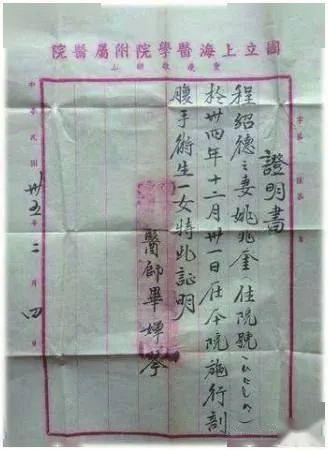 國立上海醫學院附屬醫院
重慶歌樂山
證明書
程紹德之妻姚兆奎住院號
於卅四年十二月卅一日在本院施行剖
腹手術生一女特此証明
醫師畢婵琴
中華民國卅五年二月四日